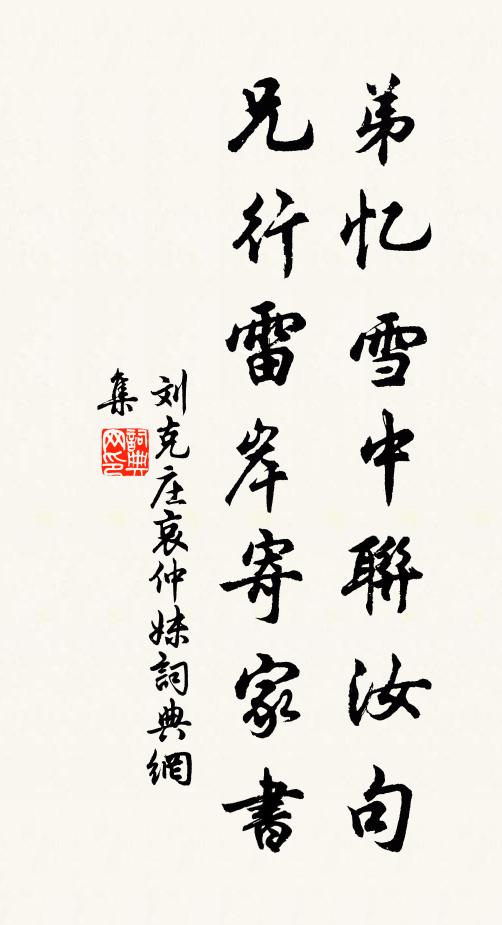 弟忆雪中聯汝句
兄行雷岸寄家書
刘克庄哀仲妹詞典網
集
詞典
网印